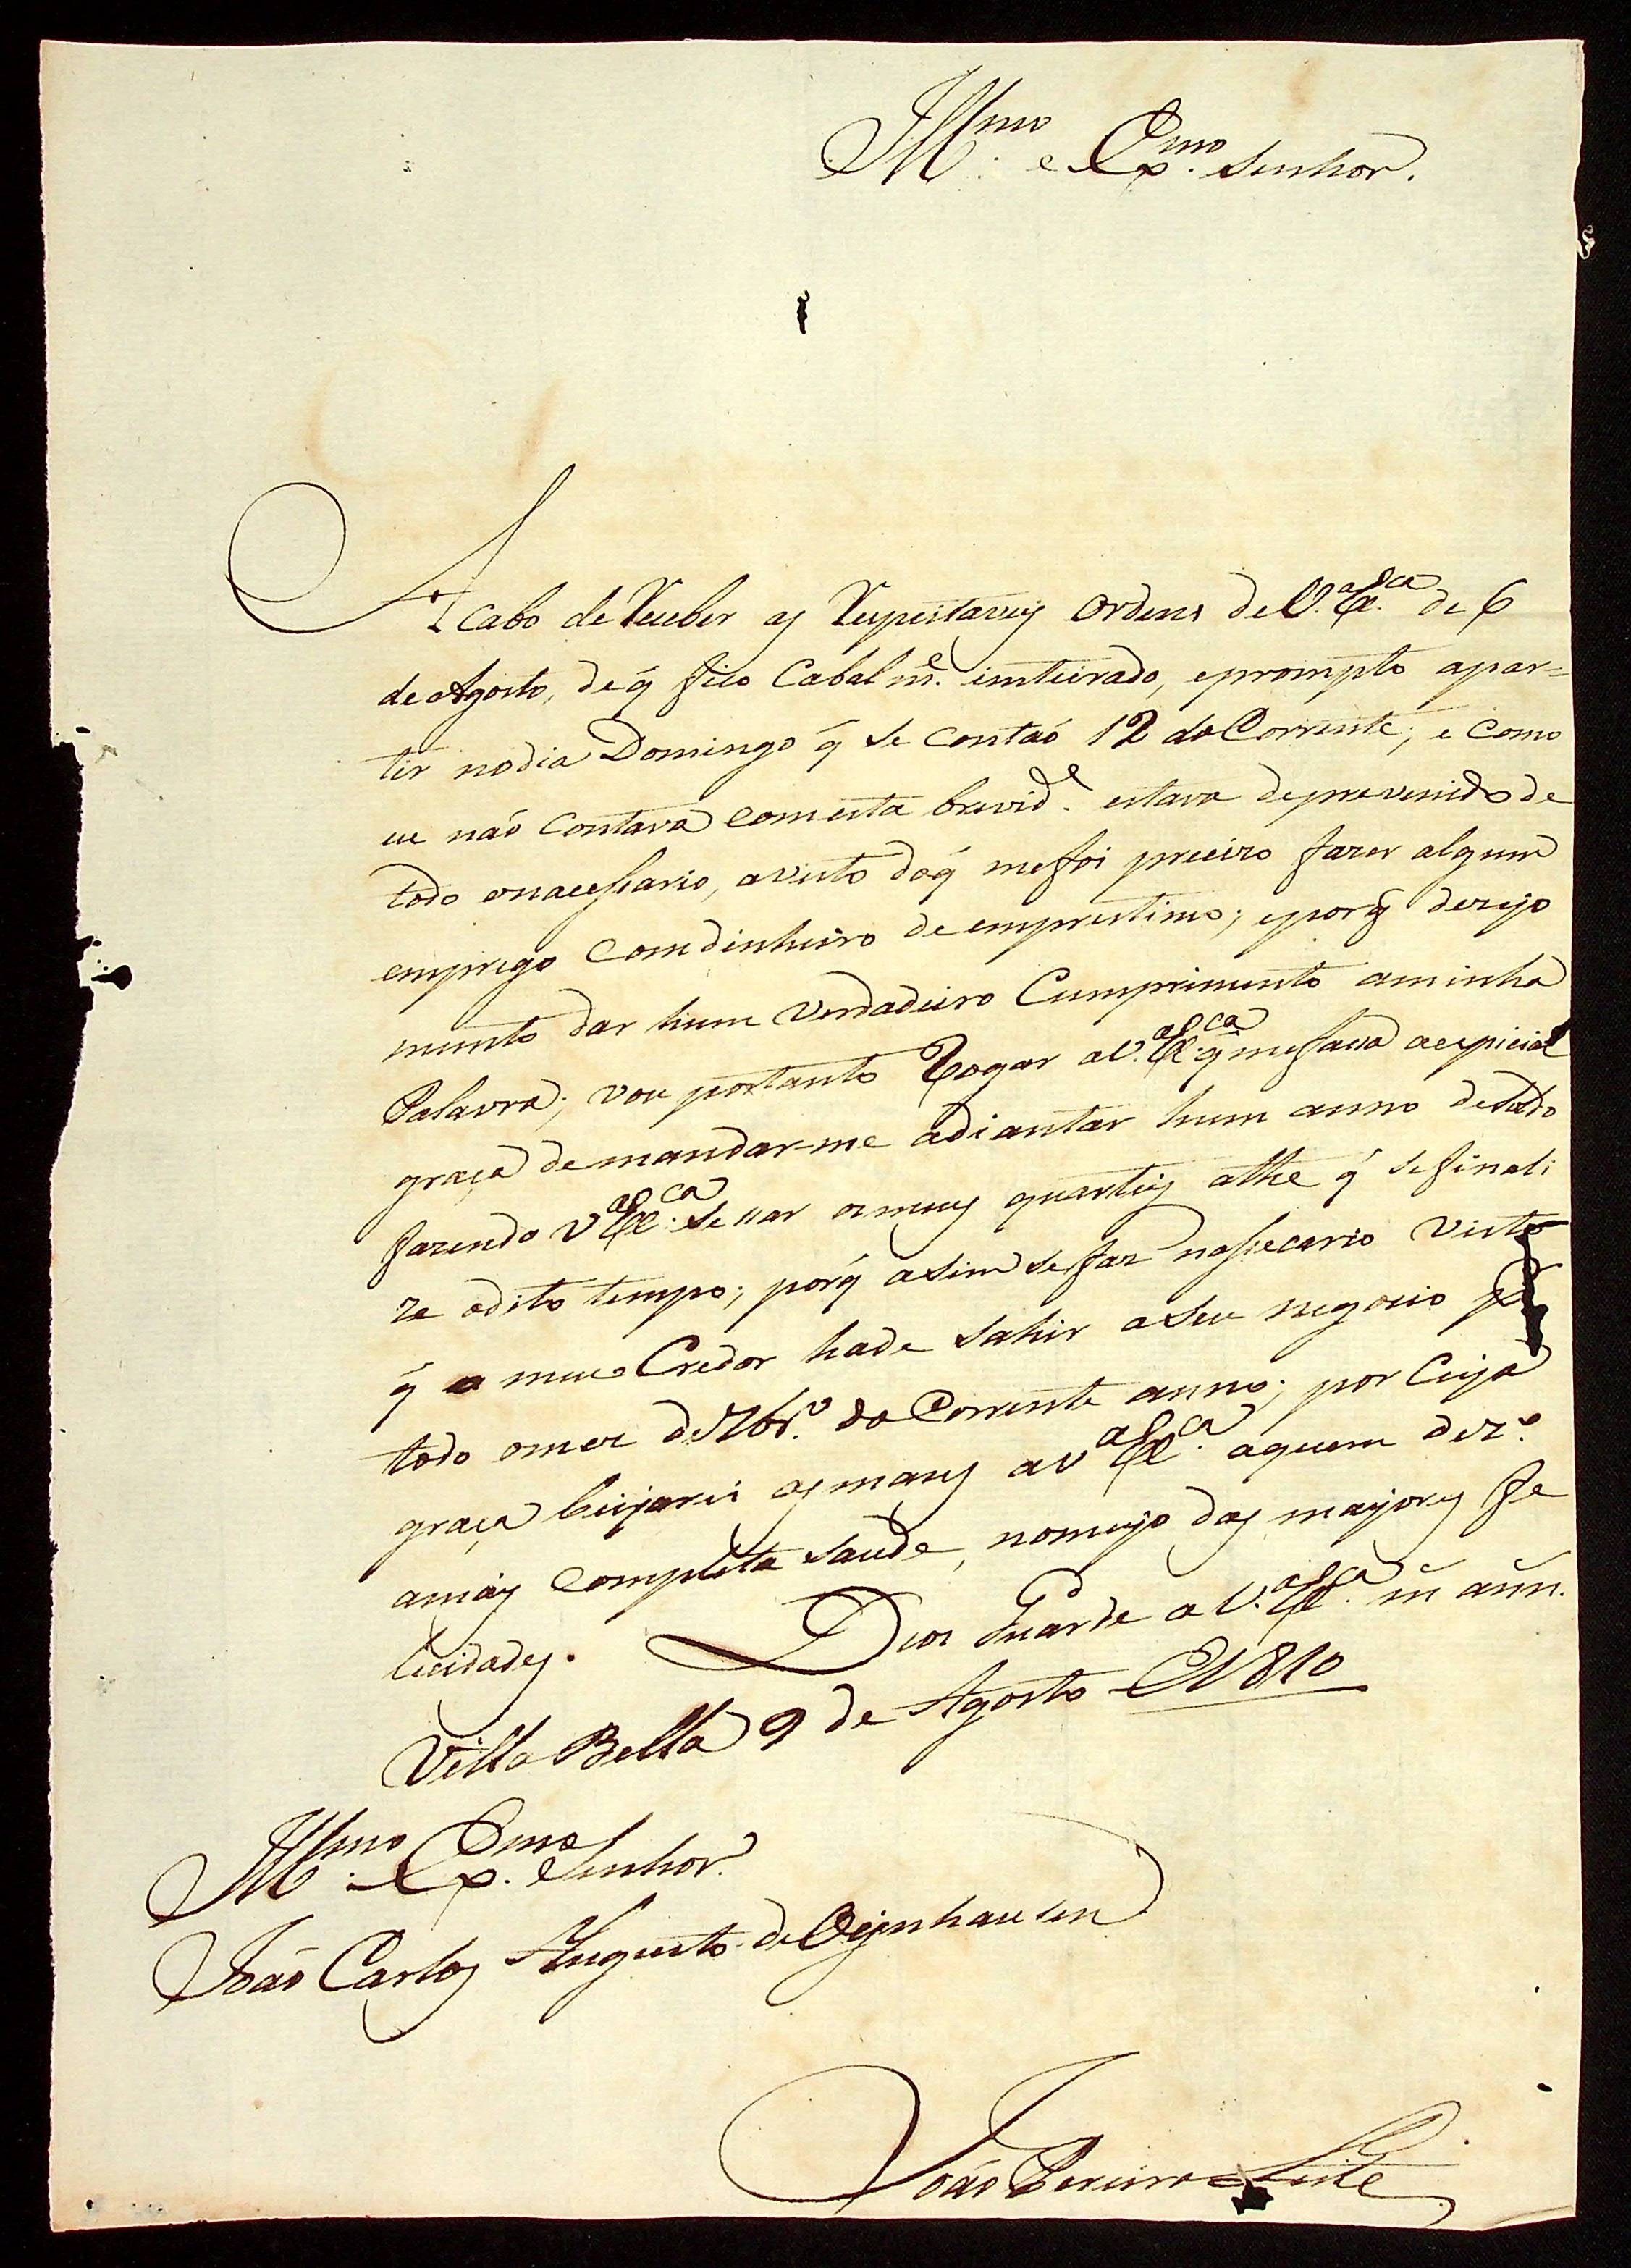 Ill.mo e Ex.mo Senhor.
Acabo de Receber as Respeitaveis Ordens de V. Ex.ca de 6
de Agosto, de q̃ fico Cabalm.e imteirado, e prompto apar=
tir nodia Domingo q̃ se contaõ 12 do Corrente; e Como
eu naõ Contava Comesta brevid.e estava deprevenido de
todo onacessario, avisto doq̃ mefoi precizo fazer algum
emprego Comdinheiro de emprestimo; eporq̃ dezejo
munto dar hum Verdadeiro Cumprimento aminha
Palavra; vou portanto Rogar aV. Ex.ca q̃ mefassa aespicial
graça demandar-me adiantar hum anno deSoldo
fazendo V Ex.ca Sessar osmeus quarteis athe q̃ sefinali
ze odito tempo; porq̃ asim sefaz nassecario Visto
q̃ o meu Credor hade Sahir aSeu negocio p.r
todo omez de 7br.o do Corrente anno; por Cuja
graça beijarei asmaos aV Ex.ca aquem dez.o
amais Completa Saude, nomeyo das mayores fe
licidades. Deos Guarde aV. Ex.ca m̃ añn.
Villa Bella 9 de Agosto de 1810
Ill.mo Ex.mo Senhor.
Joaõ Carlos Augusto de Oeynhausen
Joaõ Pereira Leite